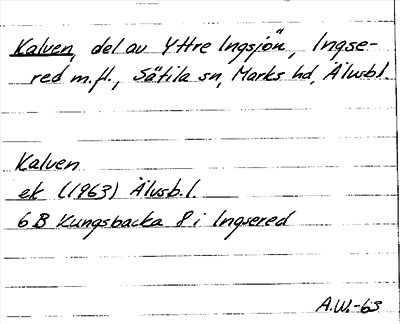 Kalven, del av Yttre Ingsjön, Ingse-
red m.fl., Sätila sn, Marks hd, Älvsbl.
Kalven
ek (1963) Älvsb.l.
6B Kungsbacka 8 i Ingsered
A.W.-63